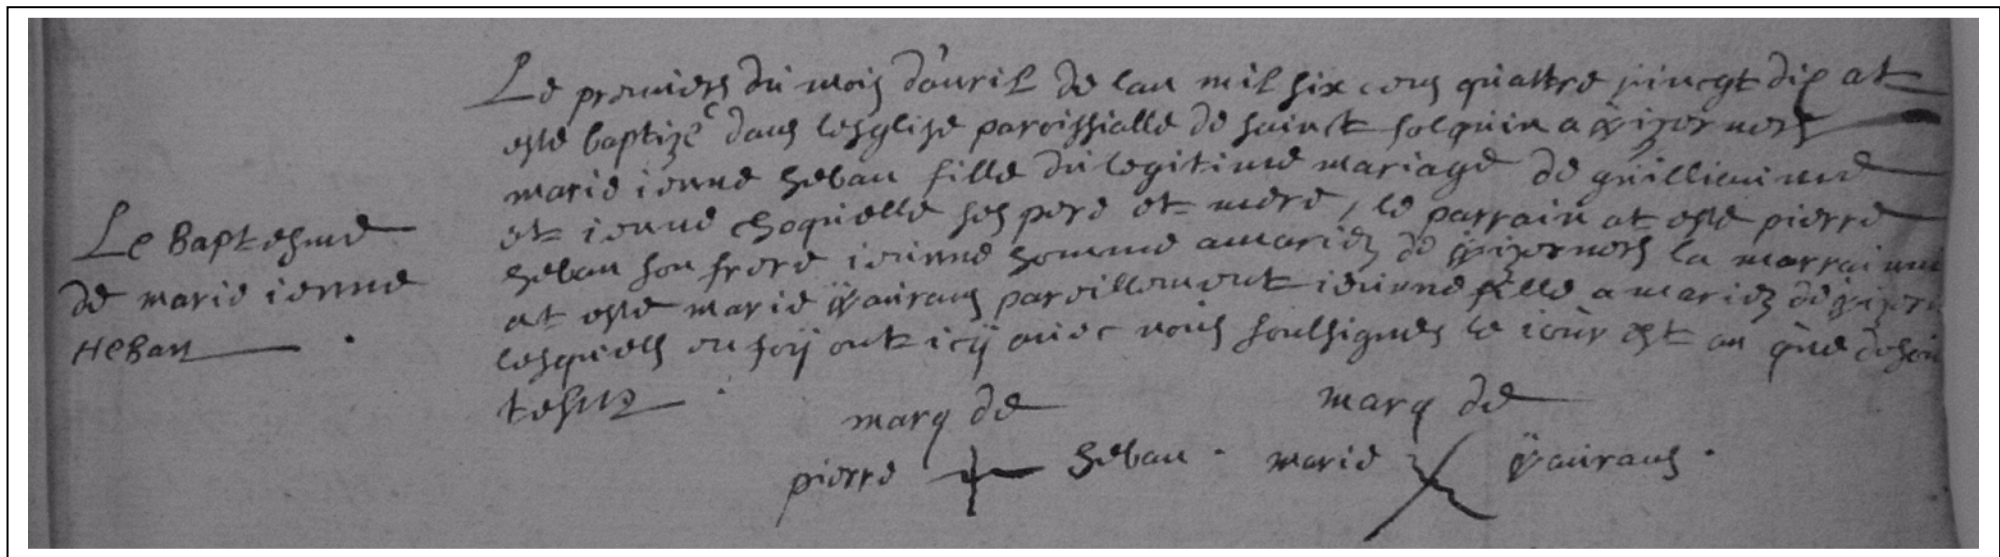 Le Baptesme
de marie ienne
Heban
Le premiers du mois d'auril de lan mil six cens quattre vinegt dix at
esté baptizé dans lesglise paroissialle de sainct folquin a
marie ienne heban fille du legitime mariage de guillieaume
et ienne choquelle ses pere et mere, le parrain at esté pierre
heban son frere ieunne homme a mariez de la marrainne
at esté marie pareillement ieunne fille a mariez de
lesquels en foÿ ont icÿ auec nous soubsignes le iour et an que
marq de marq de
pierre heban . marie